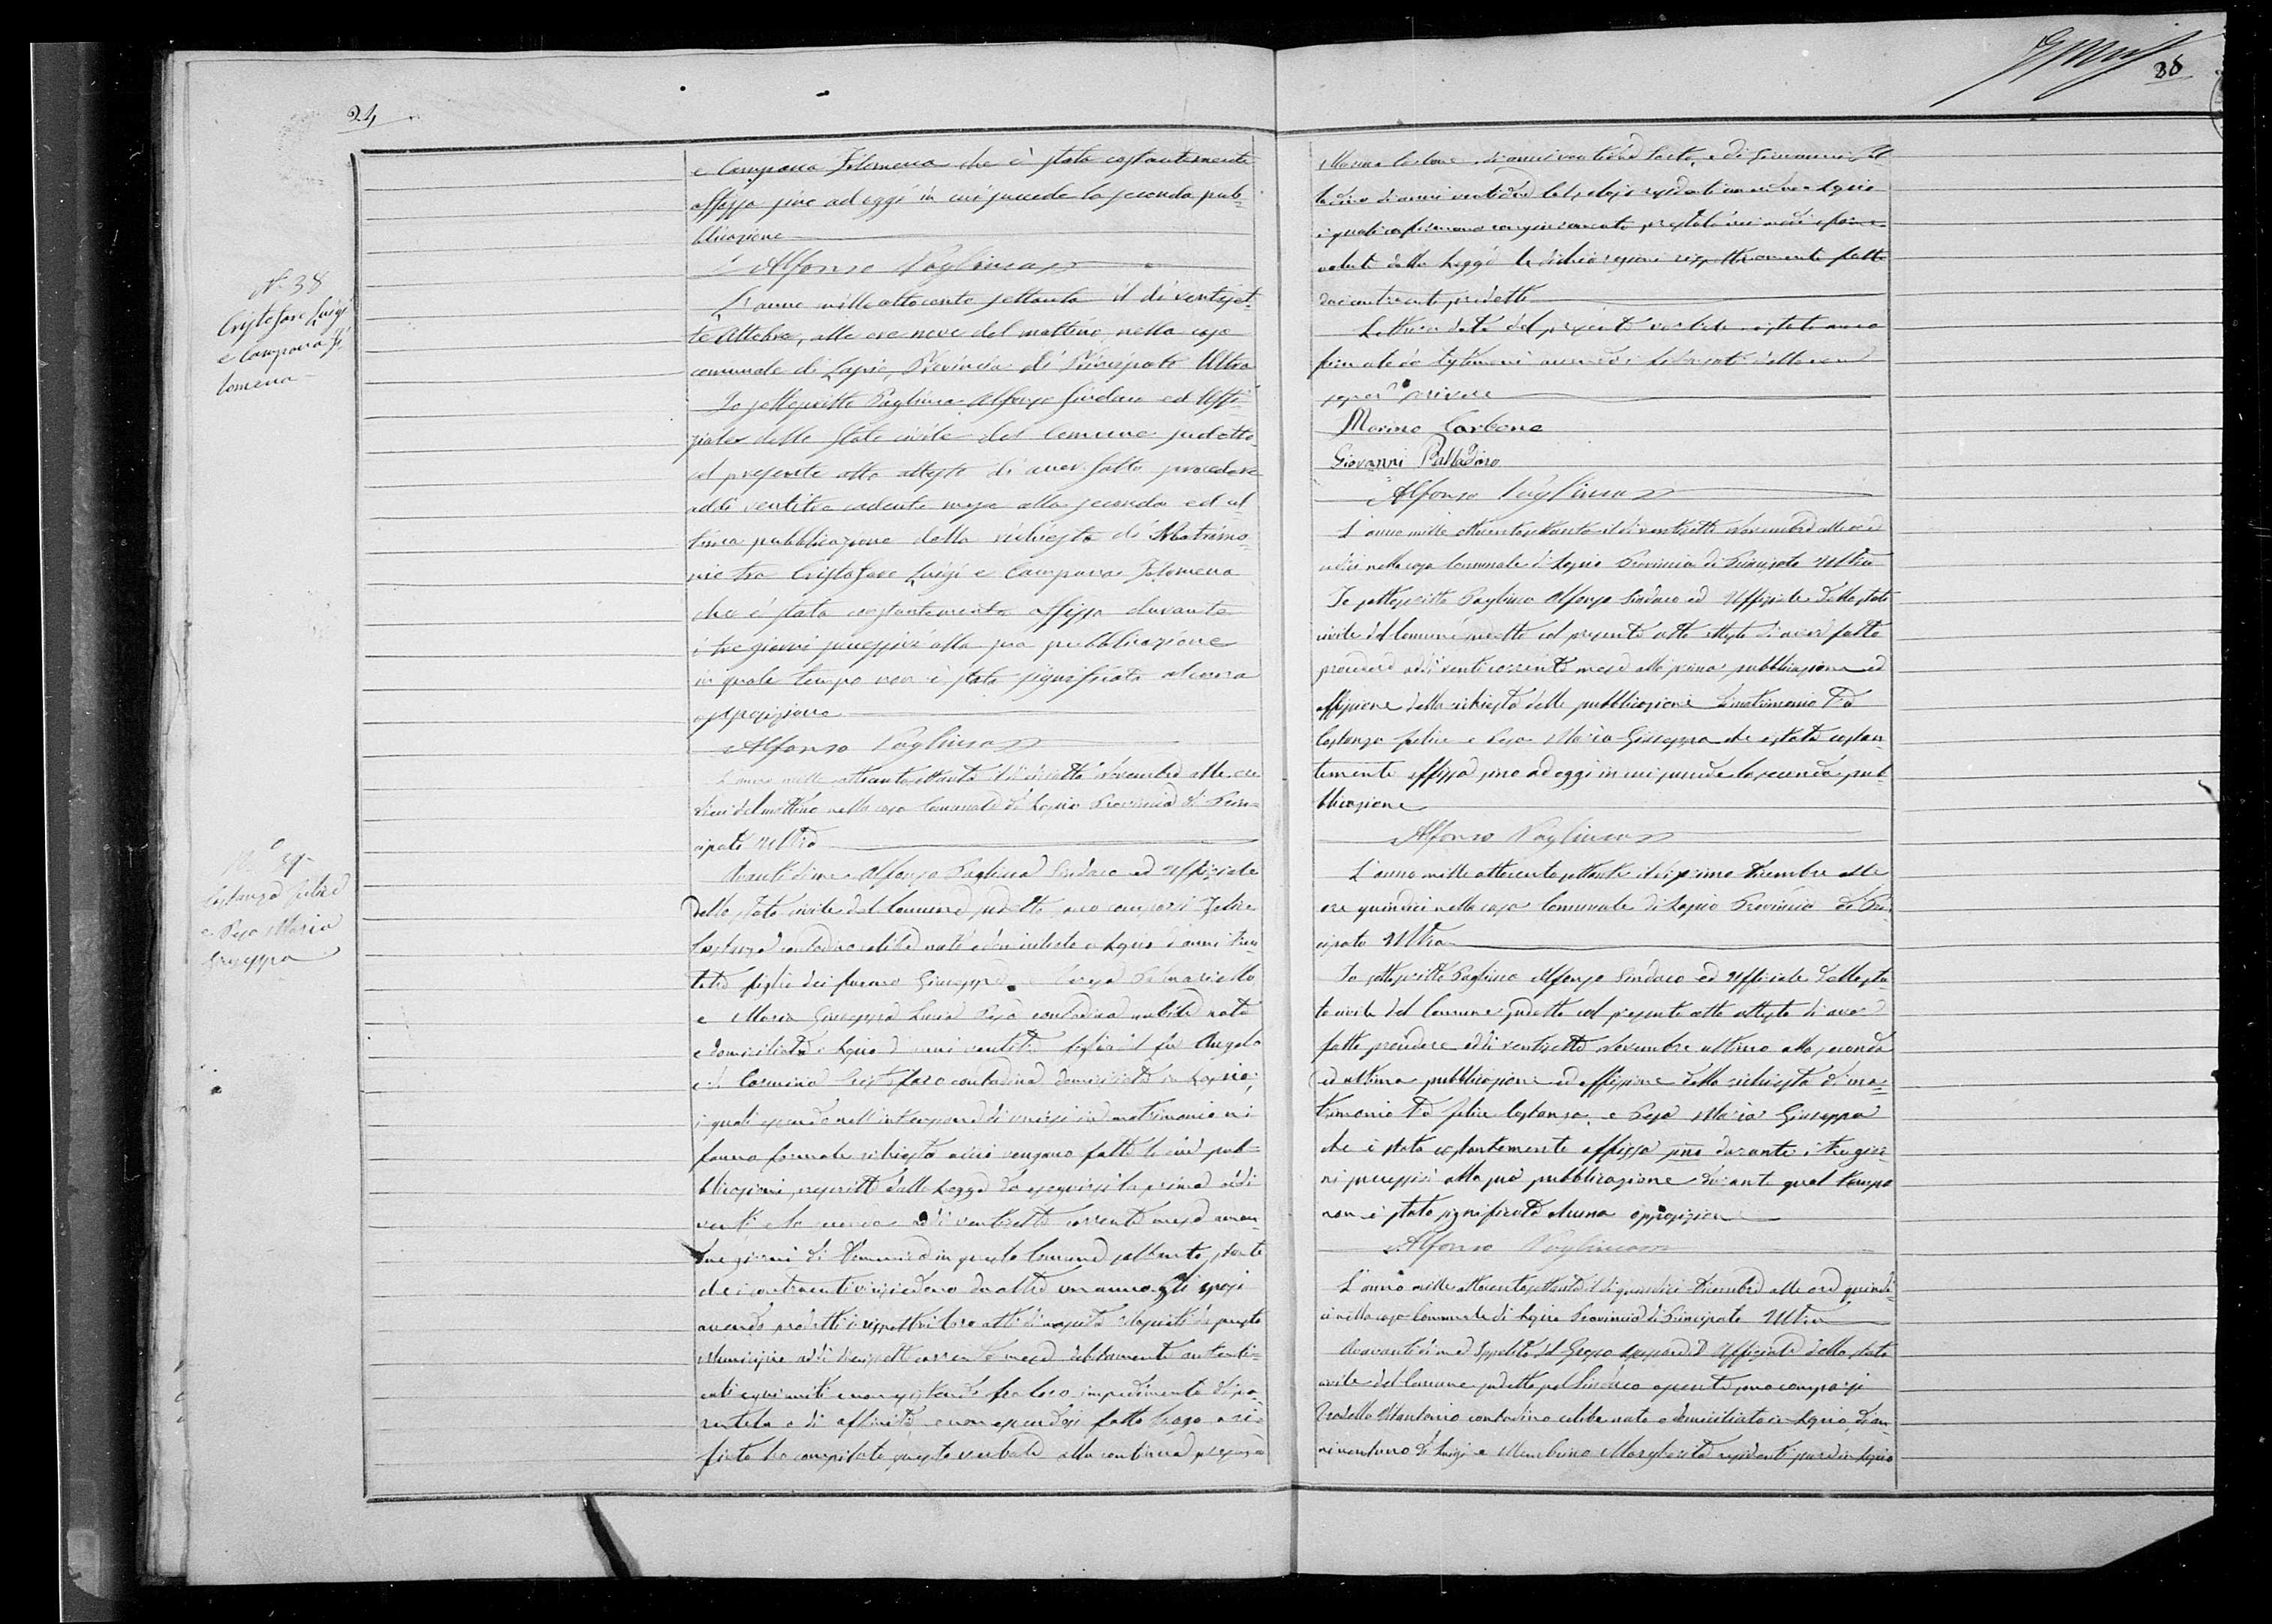 24
e Campana Filomena che è stata costantemente
affissa sino ad oggi in cui succede la seconda pub=
blicazione
Alfonso Pagliuca
N. 38
Cristofaro Luigi
e Campana Fi
lomena
L'anno mille ottocento settanta il dì ventiset=
te Ottobre, alle ore nove del mattino nella casa
comunale di Lapio, Provincia di Principato Ultra
Io sottoscritto Pagliuca Alfonso Sindaco ed Uffi=
ziale dello Stato civile del Comune sudetto
col presente atto attesto di aver fatto procedere
addì ventitre cadente mese alla seconda ed ul=
tima pubblicazione della richiesta di Matrimo=
nio tra Cristofaro Luigi e Campana Filomena
che è stata costantemente affissa durante
i tre giorni successivi alla sua pubblicazione
in quale tempo non è stata significata alcuna
opposizione
Alfonso Pagliuca
N. 39
Costanza Felice
e Pesa Maria
Giuseppa
L'anno mille ottocento settanta il dì Novembre alle ore
dieci del mattino nella casa Comunale di Lapio Provincia di Prin=
cipato Ultra
Avanti di me Alfonso Pagliuca Sindaco ed Uffiziale
dello stato civile del Comune sudetto sono comparsi Felice
Costanza contadino celibe nato e domiciliato a Lapio d'anni tren=
figlio dei furono Giuseppe e
e Maria Giuseppa Lucia Pesa contadina nubile nata
e domiciliata a Lapio d'anni figlia del fu Angelo
e di Carmina Cristofaro contadina domiciliata in Lapio;
i quali essendo nell'intenzione di unirsi in matrimonio mi
fanno formale richiesta acciò vengano fatte le due pub=
blicazioni prescritte dalla Legge da eseguirsi la prima addì
venti e la seconda addì ventisette corrente mese
due giorni di Domenica in questo Comune soltanto, stante
che i contraenti vi risiedono da oltre un anno. Gli sposi
avendo prodotti i rispettivi loro atti di nascita da questo
Municipio addì corrente mese debitamente autenti=
cati e non esistendo fra loro impedimento di pa=
rentela o di affinità, e non essendosi fatto luogo a ri=
fiuto ho compilato questo verbale alla continua presenza
28
di Marino Carbone, di anni e di Giovanni Pal=
ladino di anni residenti in Lapio
i quali
voluti dalla Legge le dichiarazioni rispettivamente fatte
dai contraenti predetti
Lettura data del presente verbale è stato meco
firmato da testimoni
scrivere
Marino Carbone
Giovanni Palladino
Alfonso Pagliuca
L'anno mille ottocento settanta il dì ventisette Novembre alle ore
dieci nella casa Comunale di Lapio Provincia di Principato Ultra
Io sottoscritto Pagliuca Alfonso Sindaco ed Uffiziale dello stato
civile del Comune sudetto col presente atto attesto di aver fatto
procedere addì venti corrente mese alla prima pubblicazione ed
affissione della richiesta delle pubblicazioni di matrimonio tra
Costanza Felice e Pesa Maria Giuseppa che è stata costan=
temente affissa sino ad oggi in cui succede la seconda pub=
blicazione
Alfonso Pagliuca
L'anno mille ottocento settanta il dì primo Dicembre alle
ore quindici nella casa Comunale di Lapio Provincia di Prin=
cipato Ultra
Io sottoscritto Pagliuca Alfonso Sindaco ed Uffiziale dello sta=
to civile del Comune sudetto col presente atto attesto di aver
fatto procedere addì ventisette Novembre ultimo alla seconda
ed ultima pubblicazione ed affissione della richiesta di ma=
trimonio tra Felice Costanza, e Pesa Maria Giuseppa
che è stata costantemente affissa sino durante i tre gior=
ni successivi alla sua pubblicazione durante qual tempo
non è stata significata alcuna opposizione
Alfonso Pagliuca
L'anno mille ottocento settanta il dì quindici Dicembre alle ore quindi=
ci nella casa Comunale di Lapio Provincia di Principato Ultra
Avanti di me Ippolito Del Grosso Assessore ed Uffiziale dello stato
civile del Comune sudetto pel Sindaco assente sono comparsi
contadino celibe nato e domiciliato in Lapio, di an=
ni ventuno di Luigi e Margherita residenti pure in Lapio